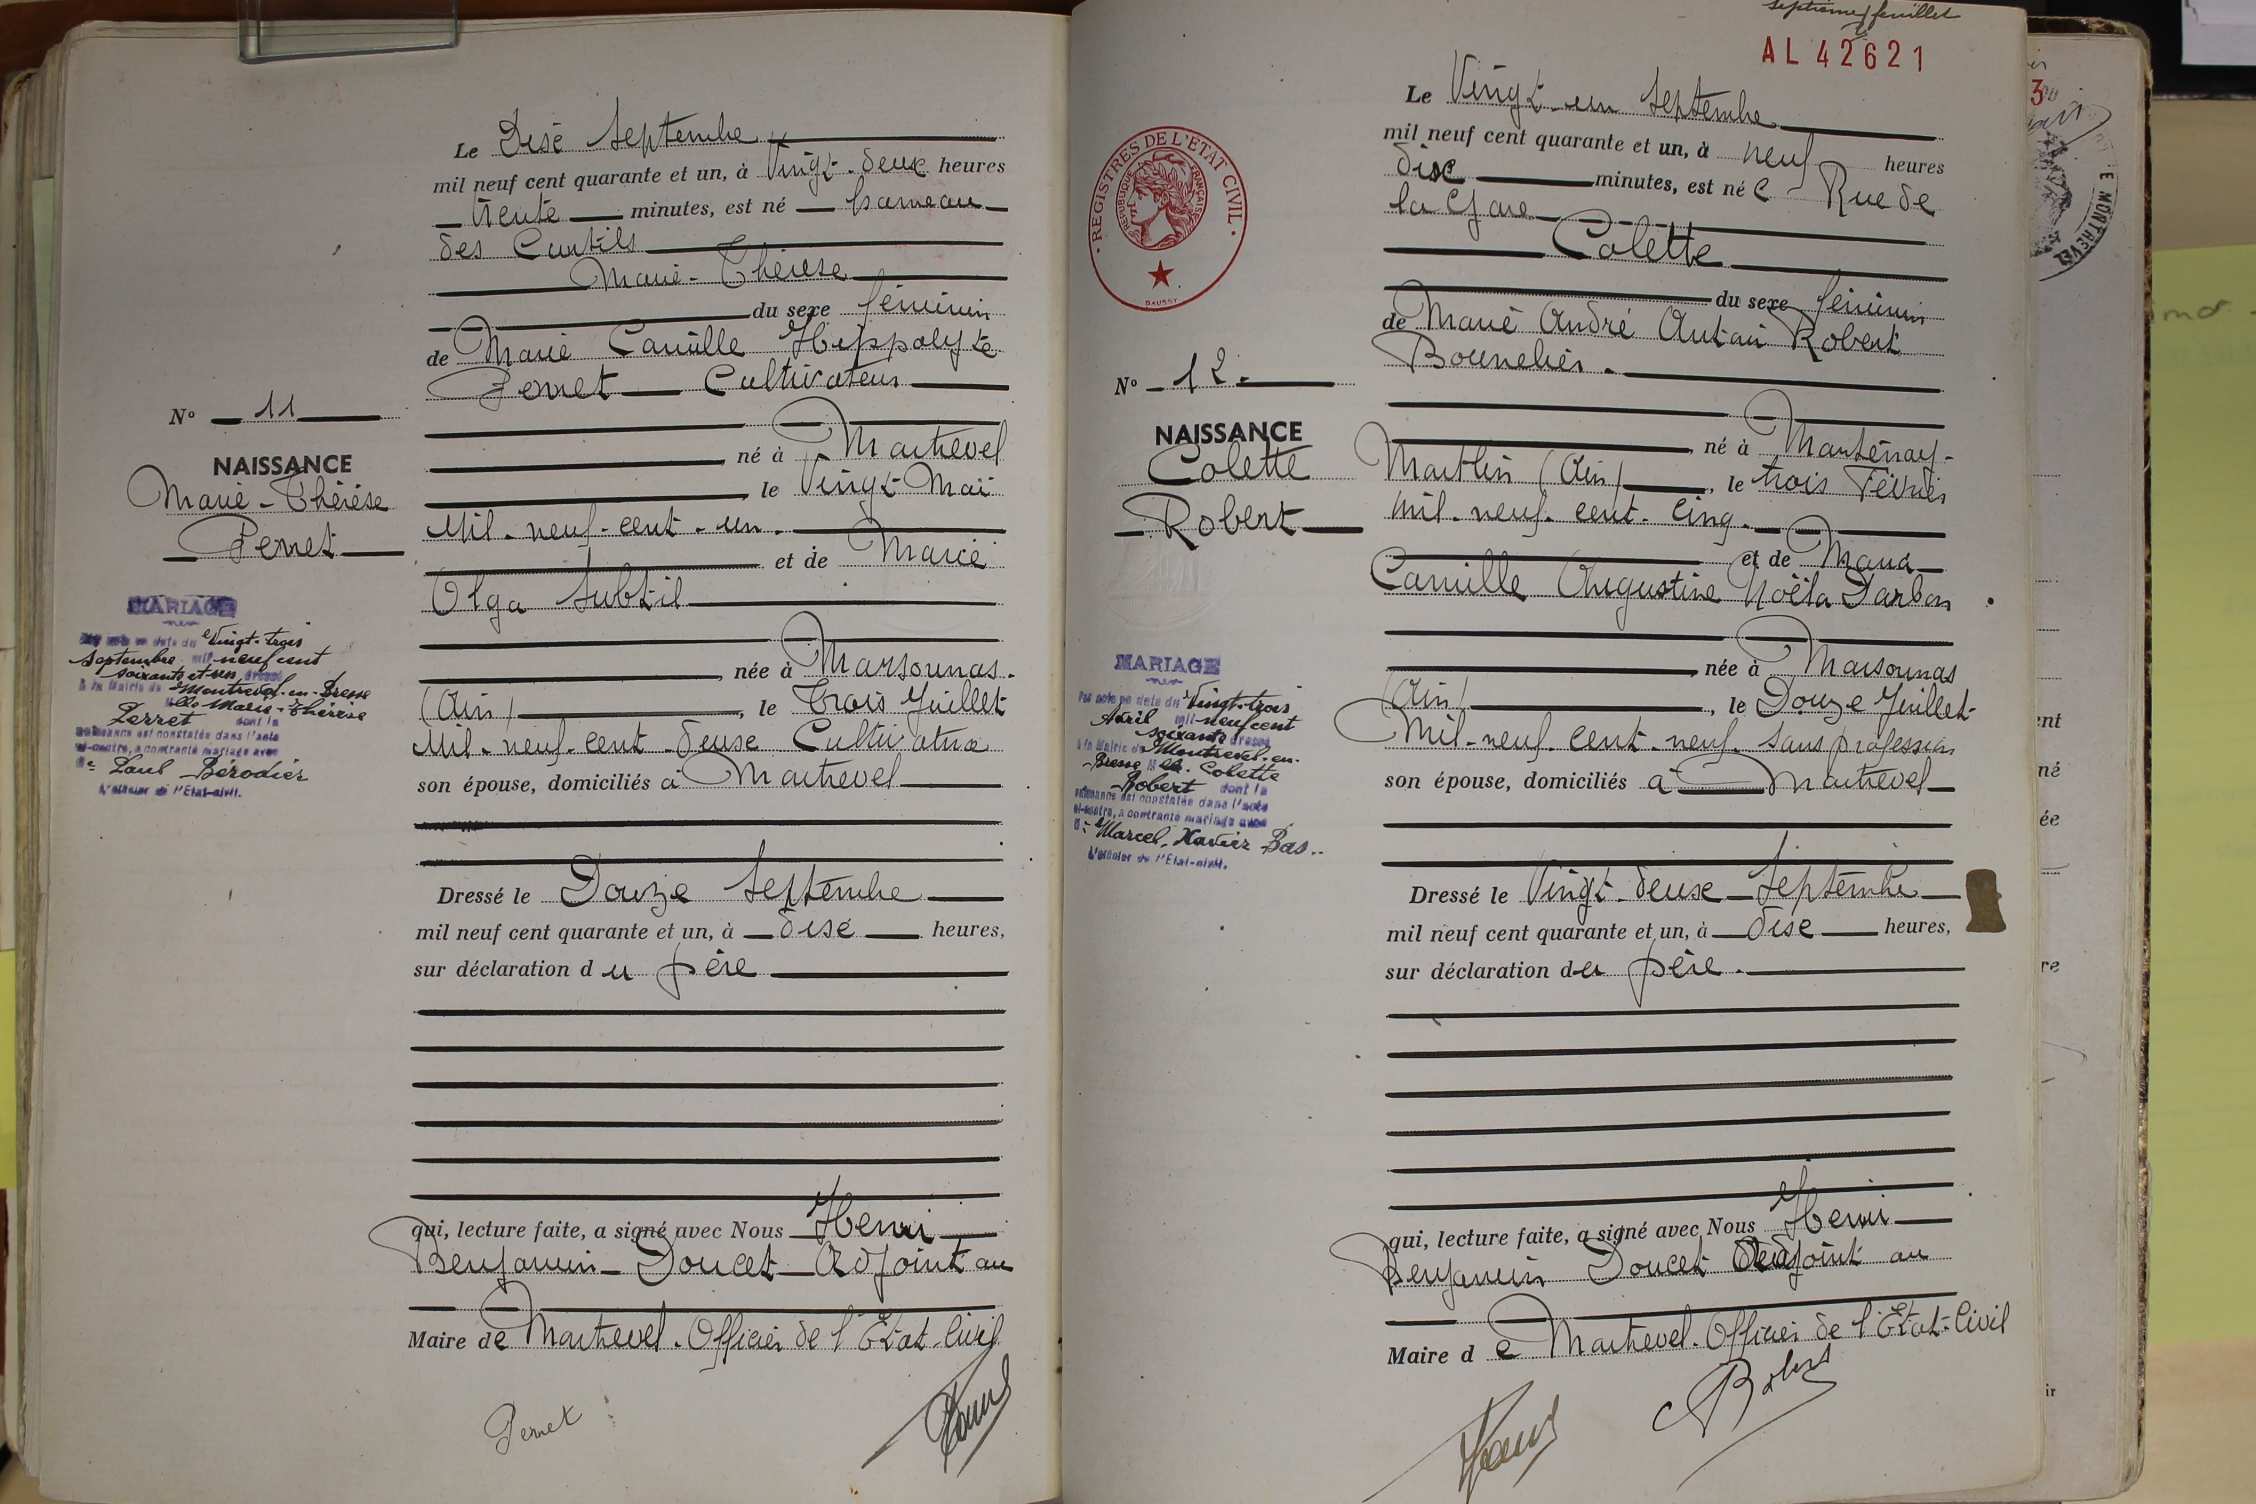 Le Dixe Septembre
mil neuf cent quarante et un, à Vingt-deux heures
trente minutes, est né hameau
des Curtils
Marie-Thérèse
du sexe féminin
de Marie Camille Hippolyte
Perret Cultivateur
né à Montrevel
le Vingt Mai
Mil-neuf-cent-un.
et de Marie
Olga Subtil
née à Marsonnas.
(Ain), le trois Juillet
Mil-neuf-cent-deux Cultivatrice
son épouse, domiciliés à Montrevel
Dressé le Douze Septembre
mil neuf cent quarante et un, à dixe heures,
sur déclaration du père
qui, lecture faite, a signé avec Nous Henri
Benjamin Doucet Adjoint au
Maire de Montrevel. Officier de l'Etat-Civil
Perret
No 11
NAISSANCE
Marie-Thérèse
Perret
MARIAGE
Par acte en date du Vingt-trois
septembre mil neuf cent
soixante et un dressé
à la Mairie de Montrevel-en-Bresse
Mlle Marie-Thérèse
Perret dont la
naissance est constatée dans l'acte
ci-contre, a contracté mariage avec
Mr Paul Bérodier
L'officier de l'Etat-civil.
septième feuillet
AL 42621
Le Vingt-un Septembre
mil neuf cent quarante et un, à neuf heures
dix minutes, est née Rue de
la Gare
Colette
du sexe féminin
de Marie André Antoin Robert
Bourrelier.
né à Mantenay-
Montlin (Ain), le trois Février
Mil-neuf-cent-cinq.
et de Maria
Camille Augustine Noëla Darbon
née à Marsonnas
(Ain), le Douze Juillet
Mil-neuf-cent-neuf sans profession
son épouse, domiciliés à Montrevel
Dressé le Vingt-deux Septembre
mil neuf cent quarante et un, à dixe heures,
sur déclaration du père.
qui, lecture faite, a signé avec Nous Henri
Benjamin Doucet Adjoint au
Maire de Montrevel. Officier de l'Etat-Civil
Robert
REGISTRES DE L'ETAT CIVIL
REPUBLIQUE FRANÇAISE
DAUSSY
No 12.
NAISSANCE
Colette
Robert
MARIAGE
Par acte en date du Vingt-trois
Avril mil neuf cent
soixante dressé
à la Mairie de Montrevel-en-
Bresse Mlle Colette
Robert dont la
naissance est constatée dans l'acte
ci-contre, a contracté mariage avec
Mr Marcel-Xavier Bas
L'officier de l'Etat-civil.